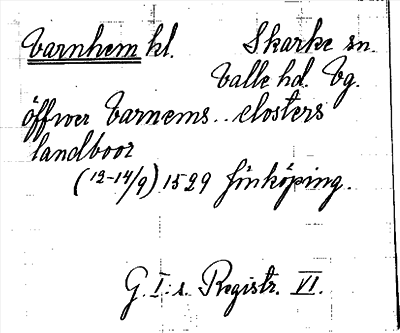 Varnhem kl. Skarke sn.
Valle hd. Vg.
öffwer Varnems.. closters
landboor
(12-14/9) 1529 Jönköping.
G. I:s Registr. VI.